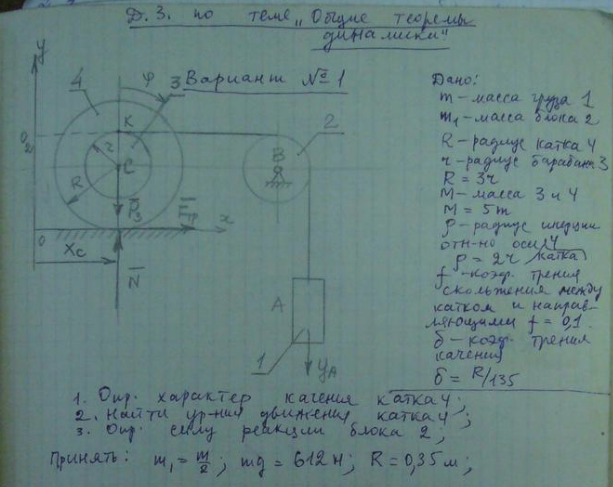 Д.З. по теме „Общие теоремы
динамики"
Вариант №1
y
4
φ
3
K
2
O₂
r
C
B
R
P₃
Fтр
x
O
Xc
N
A
1
yA
Дано:
m - масса груза 1
m₁ - масса блока 2
R - радиус катка 4
r - радиус барабана 3
R = 3r
M - масса 3 и 4
M = 5m
ρ - радиус инерции
отн-но оси 4
ρ = 2r катка
f - коэф. трения
скольжения между
катком и направ-
ляющими f = 0,1
δ - коэф. трения
качения
δ = R/135
1. Опр. характер качения катка 4;
2. Найти ур-ния движения катка 4;
3. Опр. силу реакции блока 2;
Принять: m₁ = m/2; mg = 612 н; R = 0,35 м;